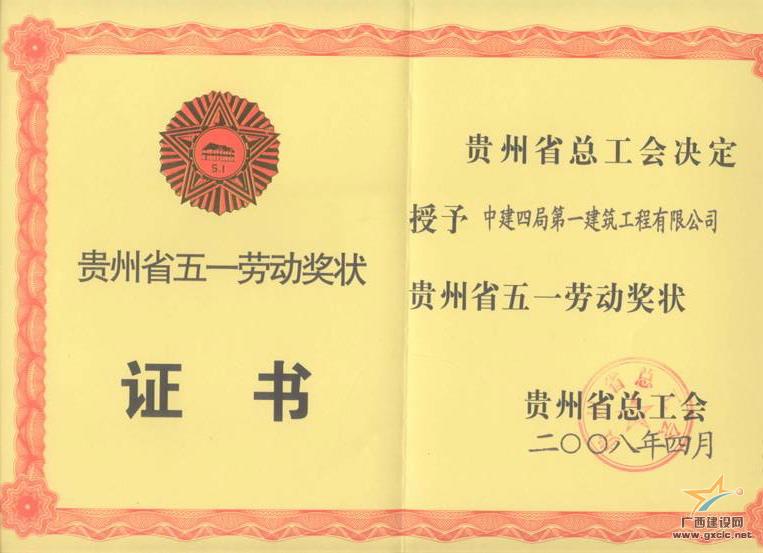 5.1
贵州省五一劳动奖状
证 书
贵州省总工会决定
授予 中建四局第一建筑工程有限公司
贵州省五一劳动奖状
省总
会
贵州省总工会
二〇〇八年四月
广西建设网
www.gxcic.net